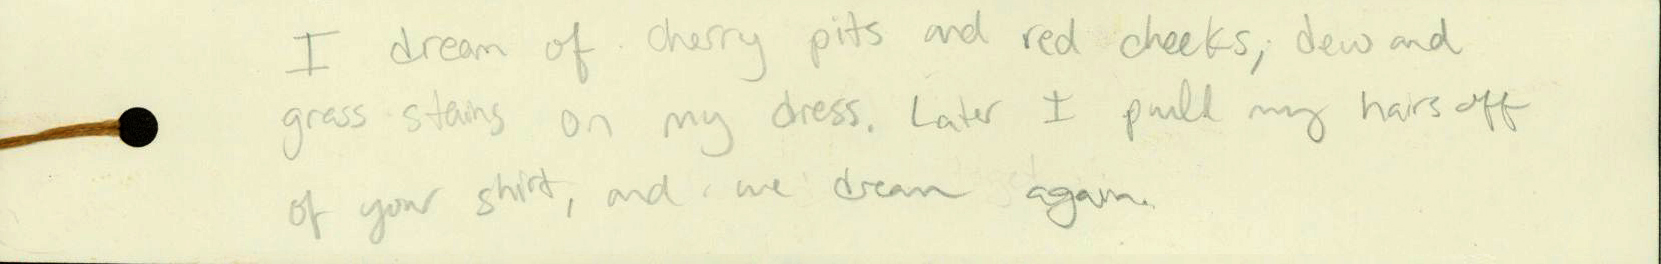 I dream of cherry pits and red cheeks, dew and
grass stains on my dress. Later I pull my hairs off
of your shirt, and we dream again.